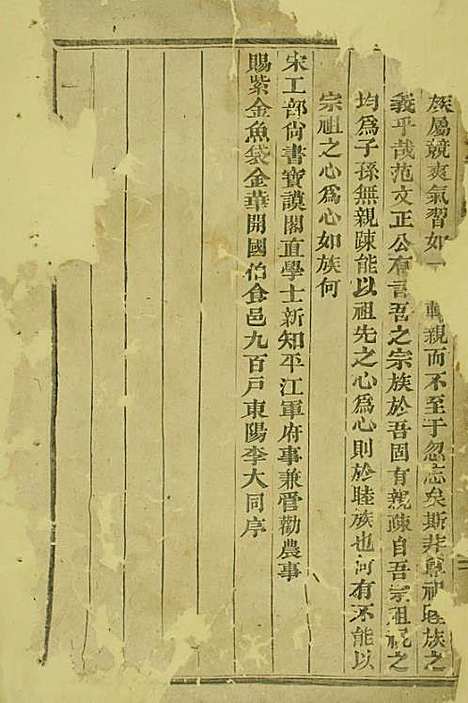 族屬競爽氣習如一 親而不至于忽忘矣斯非 族之
義乎哉范文正公有言吾之宗族於吾固有親疎自吾宗祖視之
均為子孫無親疎能以祖先之心為心則於睦族也何有不能以
宗祖之心為心如族何
宋工部尚書寶謨閣直學士新知平江軍府事兼管勸農事
賜紫金魚袋金華開國伯食邑九百戶東陽李大同序